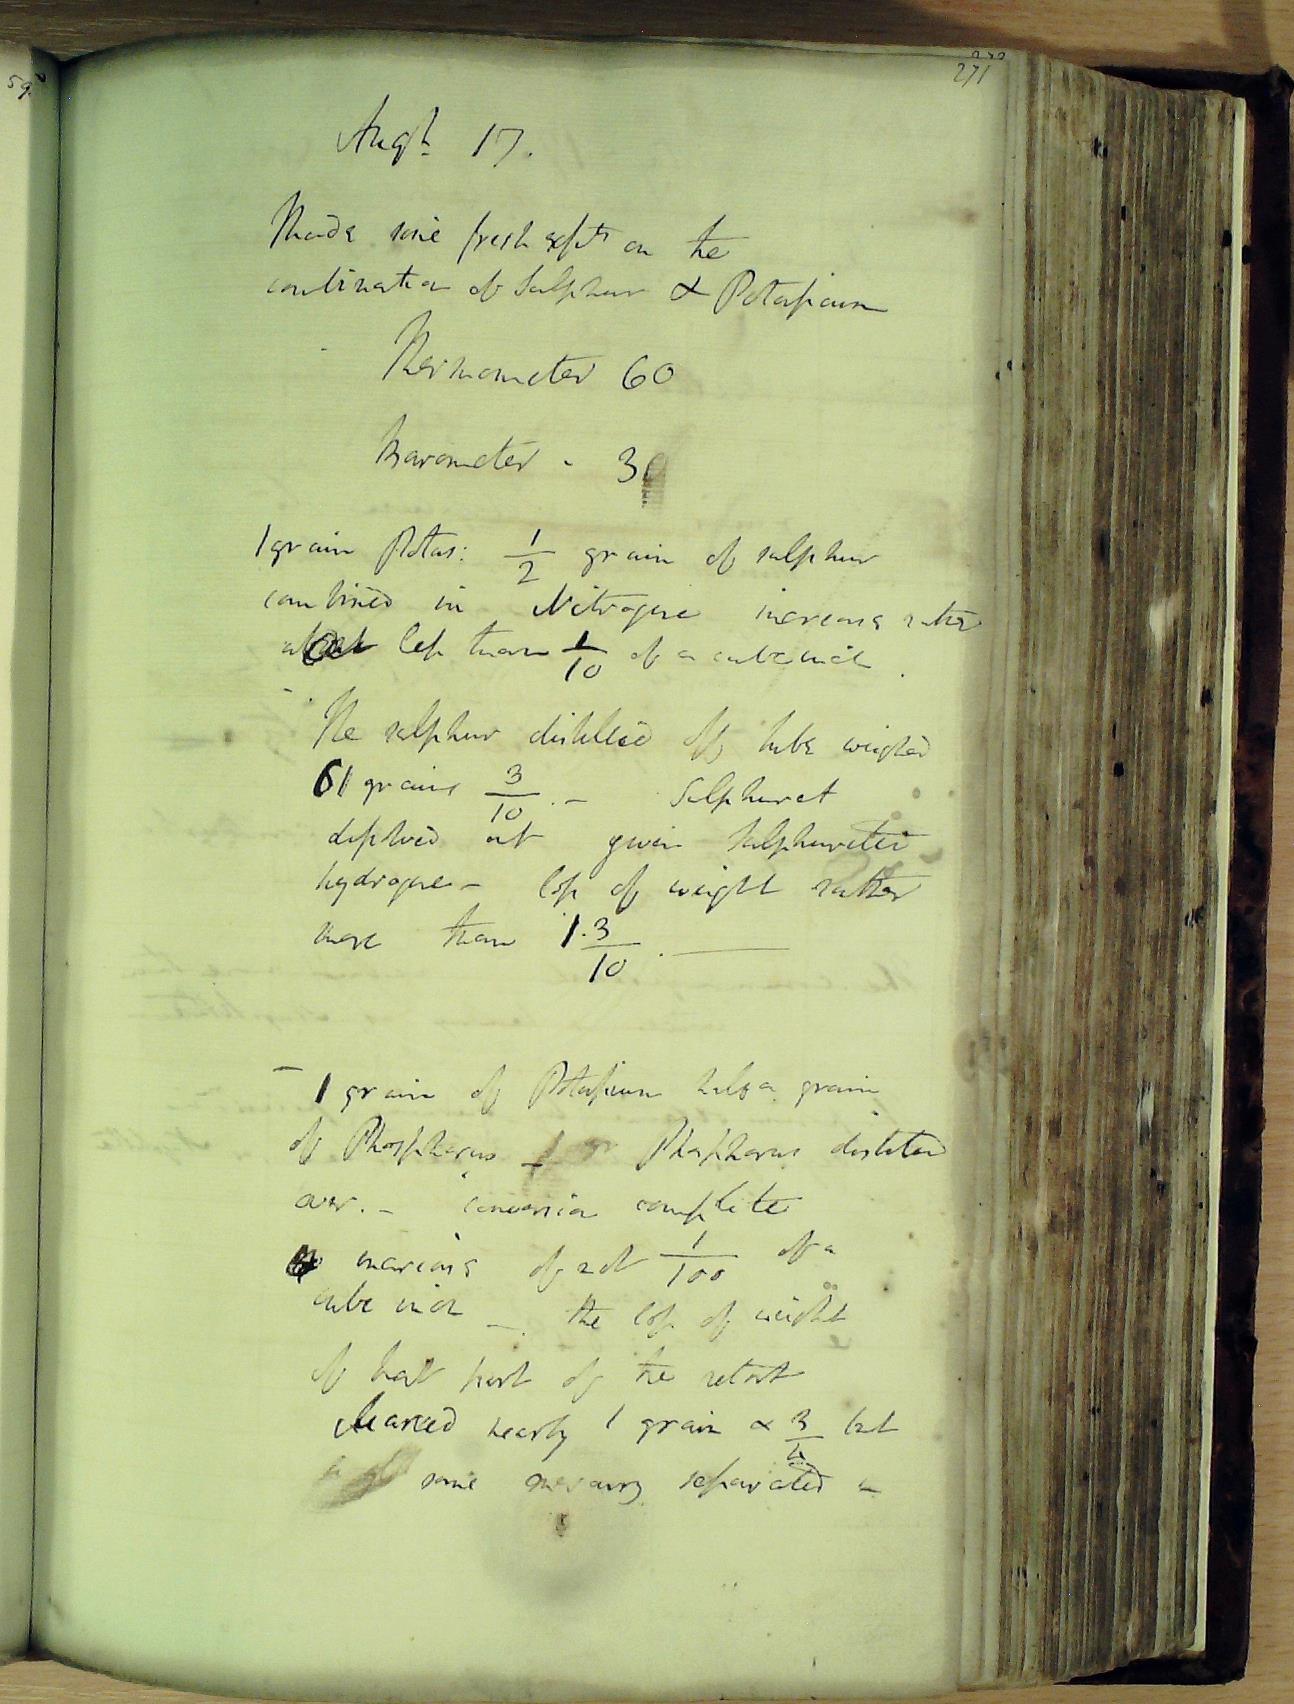 271
59
Augt 17.
Made some fresh expts on the
combination of Sulphur & Potassium
Thermometer 60
Barometer - 30
1 grain Potas: 1/2 grain of sulphur
combined in Nitrogene increase rather
less than 1/10 of a cube inch.
The sulphur distilled off tube weighed
61 grains 3/10. - Sulphuret
dissolved out given Sulphurettd
hydrogene - loss of weight rather
more than 1.3/10. —
- 1 grain of Potassium half a grain
of Phosphorus Phosphorus distilled
over. - conversion complete
increase of not 1/100 of a
cube inch - the loss of weight
of that part of the retort
cleansed nearly 1 grain & 3/4 but
some mercury separated